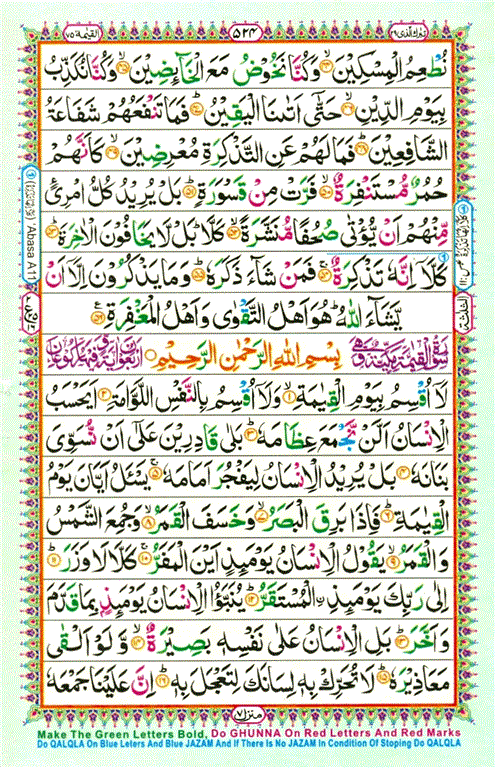 تبٰرك الذی ٢٩
٥٢٤
القیٰمة ٧٥
نُطْعِمُ الْمِسْكِيْنَ ﴿٤٤﴾ وَكُنَّا نَخُوْضُ مَعَ الْخَآئِضِيْنَ ﴿٤٥﴾ وَكُنَّا نُكَذِّبُ
بِيَوْمِ الدِّيْنِ ﴿٤٦﴾ حَتّٰٓى اَتٰىنَا الْيَقِيْنُ ﴿٤٧﴾ فَمَا تَنْفَعُهُمْ شَفَاعَةُ
الشّٰفِعِيْنَ ﴿٤٨﴾ فَمَا لَهُمْ عَنِ التَّذْكِرَةِ مُعْرِضِيْنَ ﴿٤٩﴾ كَاَنَّهُمْ
حُمُرٌ مُّسْتَنْفِرَةٌ ﴿٥٠﴾ فَرَّتْ مِنْ قَسْوَرَةٍ ﴿٥١﴾ بَلْ يُرِيْدُ كُلُّ امْرِئٍ
مِّنْهُمْ اَنْ يُّؤْتٰى صُحُفًا مُّنَشَّرَةً ﴿٥٢﴾ كَلَّا بَلْ لَّا يَخَافُوْنَ الْاٰخِرَةَ ﴿٥٣﴾
كَلَّآ اِنَّهٗ تَذْكِرَةٌ ﴿٥٤﴾ فَمَنْ شَآءَ ذَكَرَهٗ ﴿٥٥﴾ وَمَا يَذْكُرُوْنَ اِلَّآ اَنْ
يَّشَآءَ اللّٰهُ هُوَ اَهْلُ التَّقْوٰى وَاَهْلُ الْمَغْفِرَةِ ﴿٥٦﴾
بِسْمِ اللّٰهِ الرَّحْمٰنِ الرَّحِيْمِ
لَآ اُقْسِمُ بِيَوْمِ الْقِيٰمَةِ ﴿١﴾ وَلَآ اُقْسِمُ بِالنَّفْسِ اللَّوَّامَةِ ﴿٢﴾ اَيَحْسَبُ
الْاِنْسَانُ اَلَّنْ نَّجْمَعَ عِظَامَهٗ ﴿٣﴾ بَلٰى قٰدِرِيْنَ عَلٰٓى اَنْ نُّسَوِّيَ
بَنَانَهٗ ﴿٤﴾ بَلْ يُرِيْدُ الْاِنْسَانُ لِيَفْجُرَ اَمَامَهٗ ﴿٥﴾ يَسْـَٔلُ اَيَّانَ يَوْمُ
الْقِيٰمَةِ ﴿٦﴾ فَاِذَا بَرِقَ الْبَصَرُ ﴿٧﴾ وَخَسَفَ الْقَمَرُ ﴿٨﴾ وَجُمِعَ الشَّمْسُ
وَالْقَمَرُ ﴿٩﴾ يَقُوْلُ الْاِنْسَانُ يَوْمَئِذٍ اَيْنَ الْمَفَرُّ ﴿١٠﴾ كَلَّا لَا وَزَرَ ﴿١١﴾
اِلٰى رَبِّكَ يَوْمَئِذِ ۨالْمُسْتَقَرُّ ﴿١٢﴾ يُنَبَّؤُا الْاِنْسَانُ يَوْمَئِذٍ بِمَا قَدَّمَ
وَاَخَّرَ ﴿١٣﴾ بَلِ الْاِنْسَانُ عَلٰى نَفْسِهٖ بَصِيْرَةٌ ﴿١٤﴾ وَّلَوْ اَلْقٰى
مَعَاذِيْرَهٗ ﴿١٥﴾ لَا تُحَرِّكْ بِهٖ لِسَانَكَ لِتَعْجَلَ بِهٖ ﴿١٦﴾ اِنَّ عَلَيْنَا جَمْعَهٗ
منزل ٧
'Abasa A11
Make The Green Letters Bold, Do GHUNNA On Red Letters And Red Marks
Do QALQLA On Blue Leters And Blue JAZAM And If There Is No JAZAM in Condition Of Stoping Do QALQLA